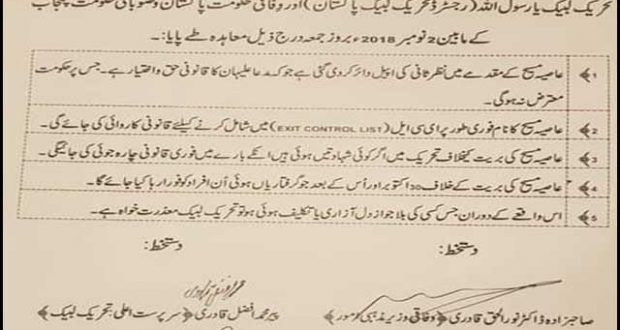 تحریک لبیک یارسول اللہ (رجسٹرڈ تحریک لبیک پاکستان) اور وفاقی حکومت پاکستان وصوبائی حکومت پنجاب
کے مابین 2 نومبر 2018ء بروز جمعہ درج ذیل معاہدہ طے پایا:۔
۱﴾ عاصیہ مسیح کے مقدمے میں نظر ثانی کی اپیل دائر کر دی گئی ہے جو کہ مدعا علیہان کا قانونی حق و اختیار ہے۔ جس پر حکومت
معترض نہ ہوگی۔
۲﴾ عاصیہ مسیح کا نام فوری طور پر ای سی ایل (EXIT CONTROL LIST) میں شامل کرنے کیلئے قانونی کاروائی کی جائے گی۔
۳﴾ عاصیہ مسیح کی بریت کیخلاف تحریک میں اگر کوئی شہادتیں ہوئی ہیں انکے بارے میں فوری قانونی چارہ جوئی کی جائیگی۔
۴﴾ عاصیہ مسیح کی بریت کے خلاف 30 اکتوبر اور اُس کے بعد جو گرفتاریاں ہوئی اُن افراد کو فوراً رہا کیا جائے گا۔
۵﴾ اس واقعے کے دوران جس کسی کی بلا جواز دل آزاری یا تکلیف ہوئی ہو تو تحریک لبیک معذرت خواہ ہے۔
دستخط:
دستخط:
صاحبزادہ ڈاکٹر نور الحق قادری ﴿وفاقی وزیر مذہبی امور﴾
پیر محمد افضل قادری ﴿سرپرست اعلیٰ تحریک لبیک﴾